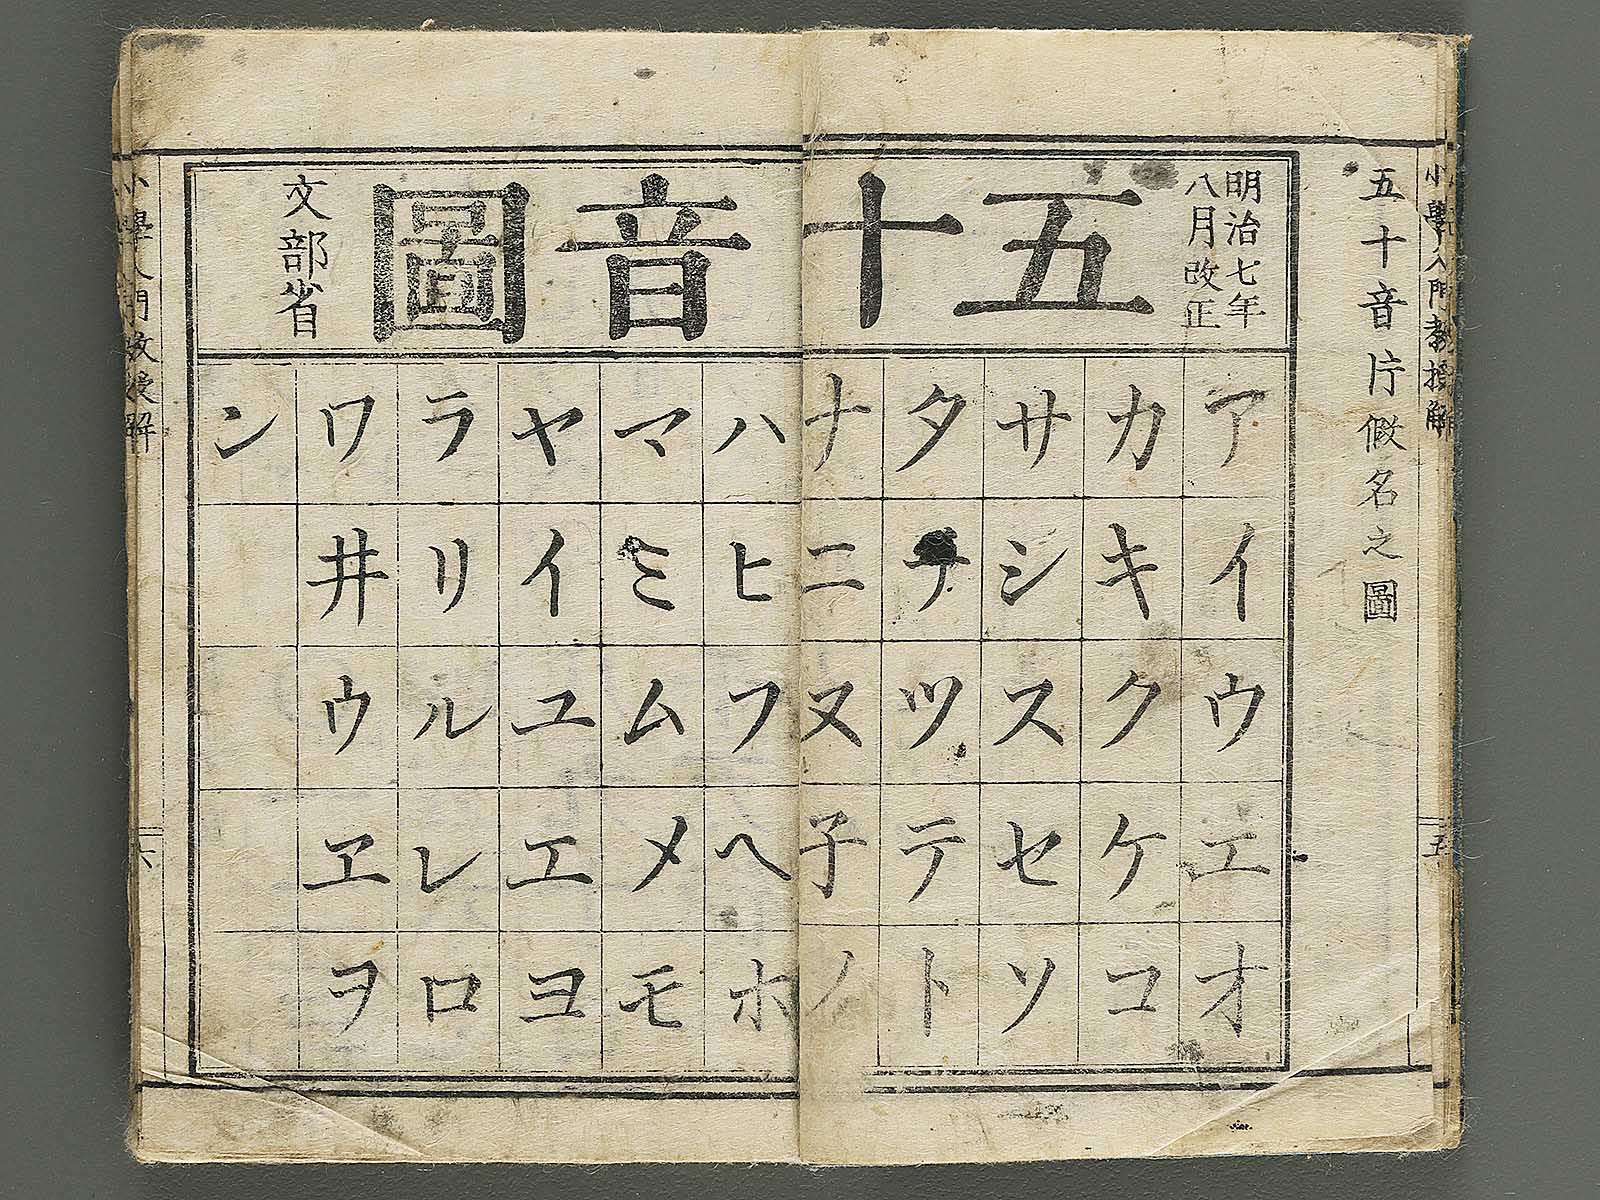 小學入門教授解
五
五十音片假名之圖
明治七年
八月改正
五十音圖
文部省
アイウエオ
カキクケコ
サシスセソ
タチツテト
ナニヌ子ノ
ハヒフヘホ
マミムメモ
ヤイユエヨ
ラリルレロ
ワ井ウヱヲ
ン
小學入門教授解
六